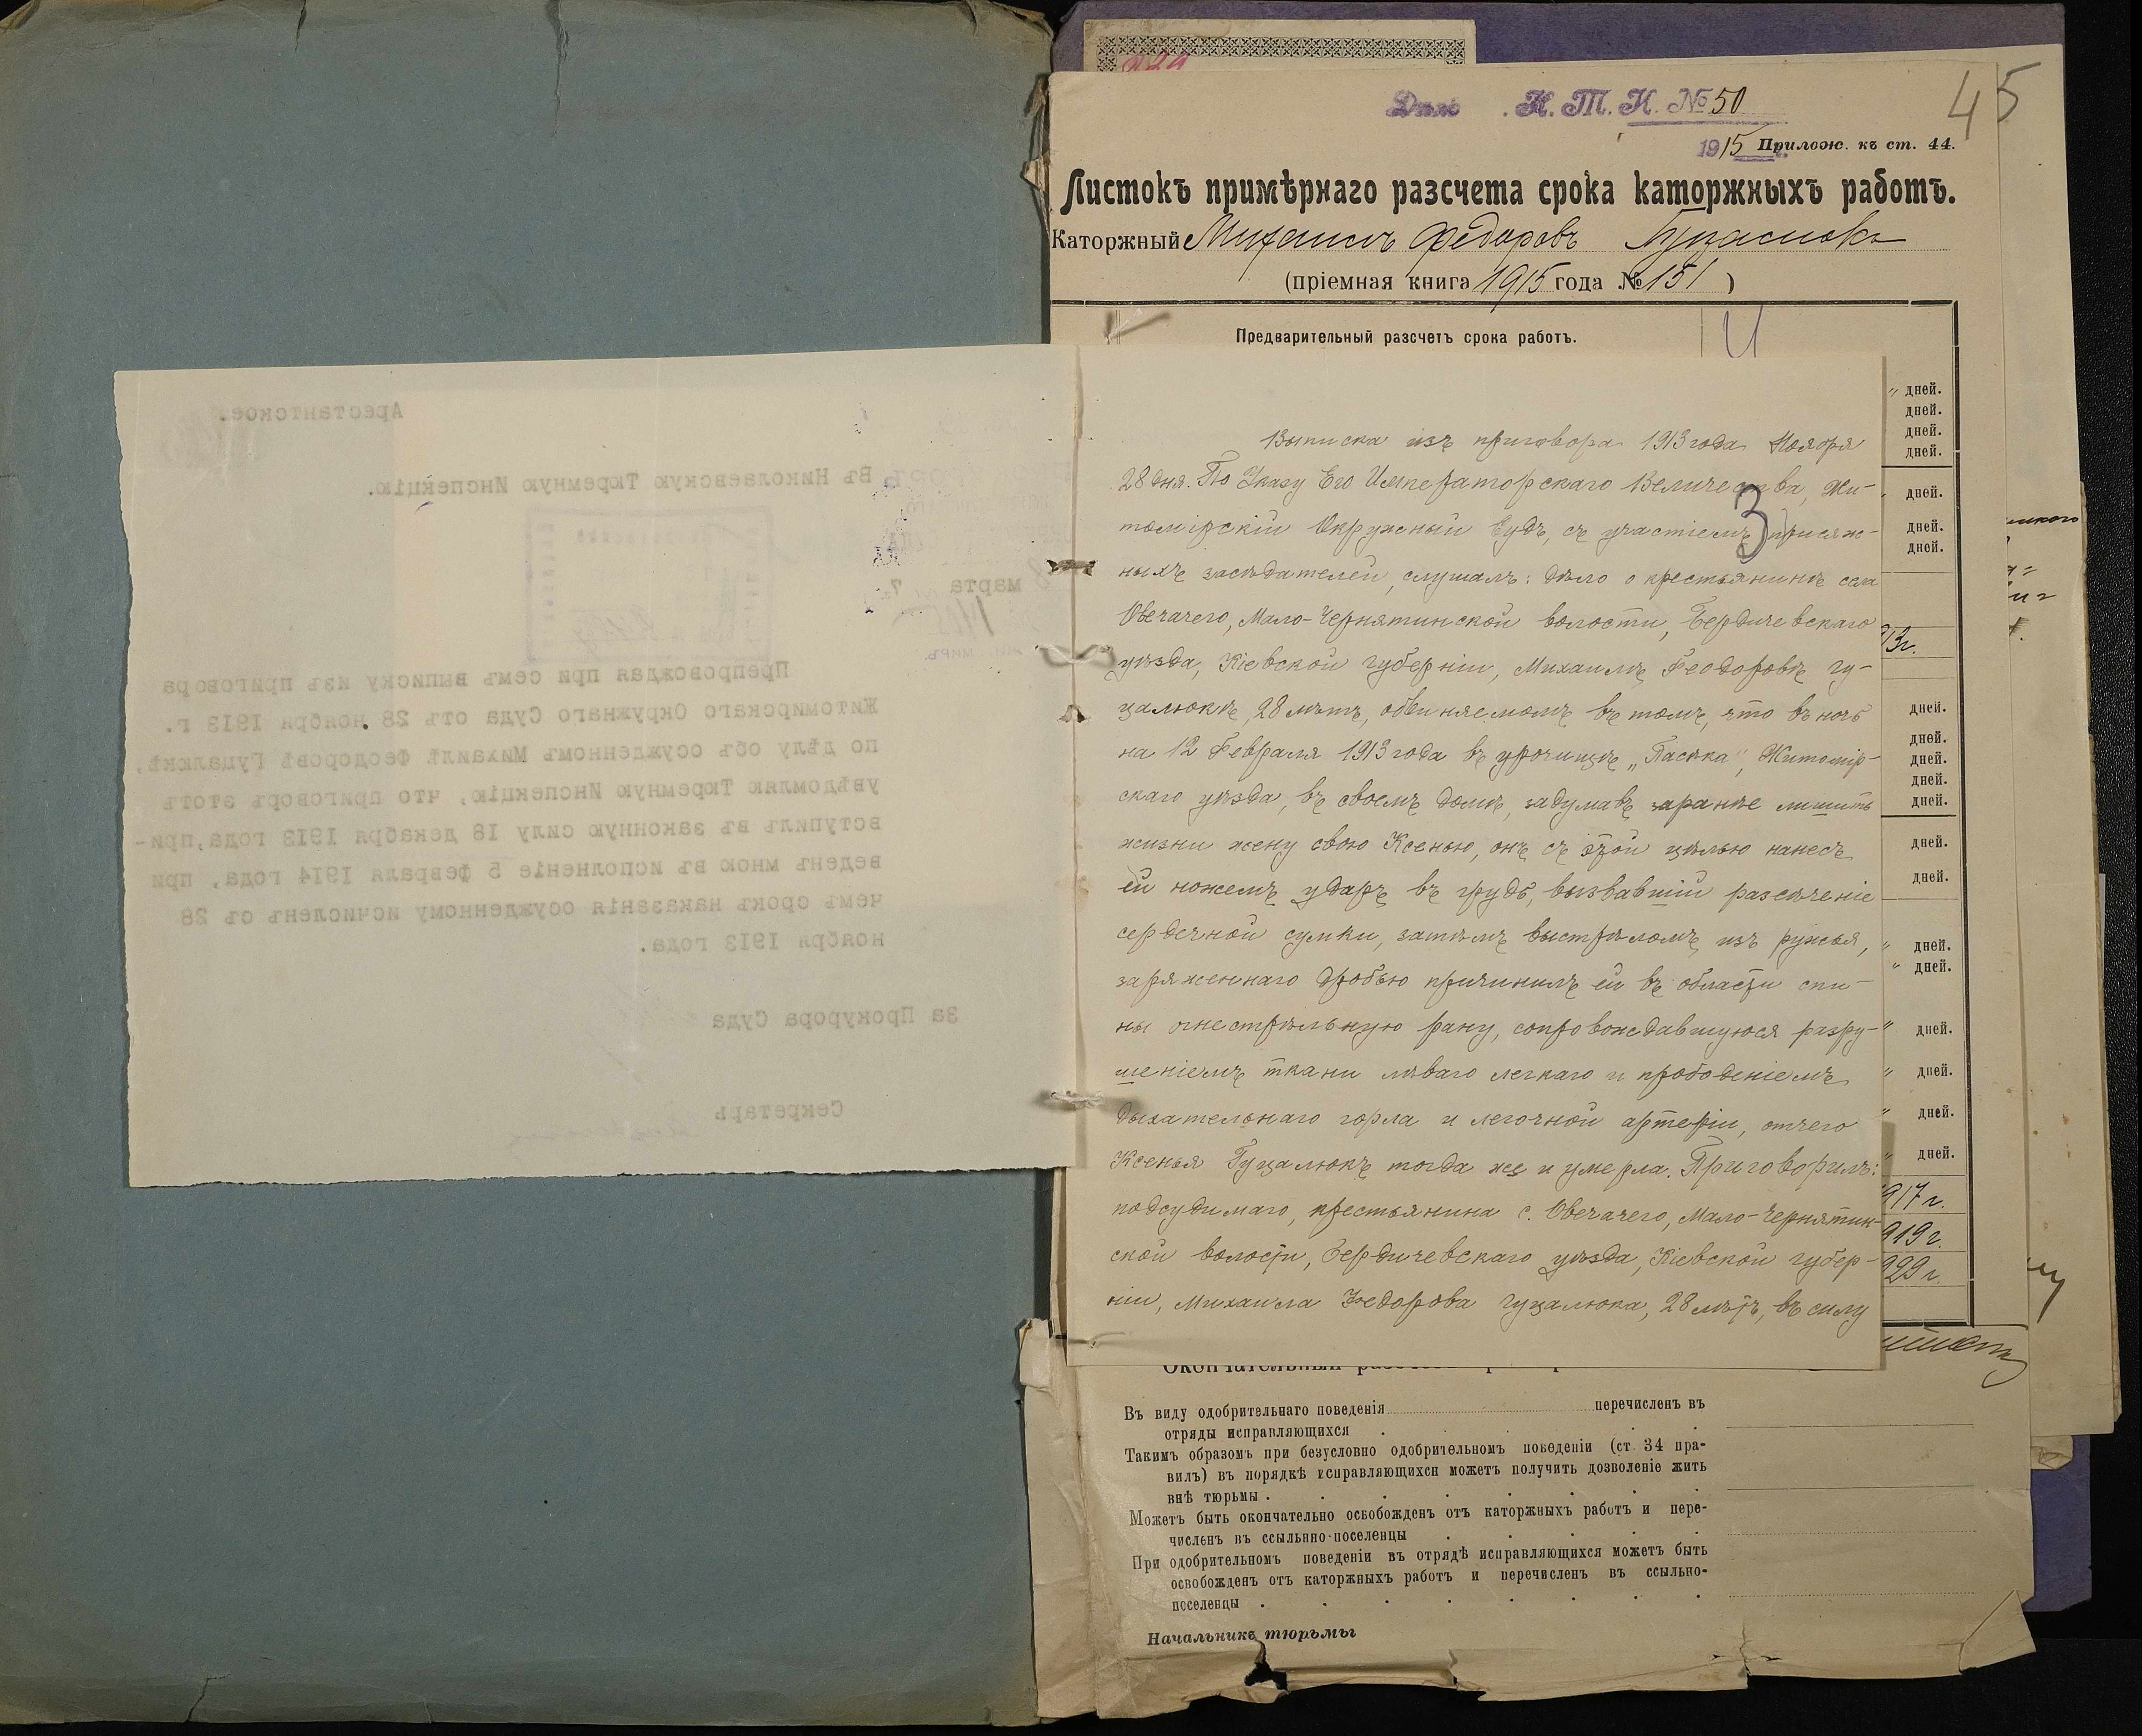 Арестантское.
Въ Николаевскую Тюремную Инспекцію.
марта
Препровождая при семъ выписку изъ приговора
Житомирскаго Окружнаго Суда отъ 28 ноября 1913 г.
по дѣлу объ осужденномъ Михаилѣ Феодоровѣ Гуцалюкѣ,
увѣдомляю Тюремную Инспекцію, что приговоръ этотъ
вступилъ въ законную силу 18 декабря 1913 года, при-
веденъ мною въ исполненіе 5 февраля 1914 года, при
чемъ срокъ наказанія осужденному исчисленъ съ 28
ноября 1913 года.
За Прокурора Суда
Секретарь
К. Т. И. № 50
45
1915 Прилож. къ ст. 44.
Листокъ примѣрнаго разсчета срока каторжныхъ работъ.
Каторжный Михаилъ Федоровъ Гуцалюкъ
(пріемная книга 1915 года № 151)
Предварительный разсчетъ срока работъ.
3
Выписка изъ приговора 1913 года Ноября
28 дня. По Указу Его Императорскаго Величества, Жи-
томірскій Окружный Судъ, съ участіемъ присяж-
ныхъ засѣдателей, слушалъ: дѣло о крестьянинѣ села
Овечачего, Мало-Чернятинской волости, Бердичевскаго
уѣзда, Кіевской губерніи, Михаилѣ Феодоровѣ Гу-
цалюкѣ, 28 лѣтъ, обвиняемомъ въ томъ, что въ ночь
на 12 Февраля 1913 года въ урочищѣ „Пасѣка", Житомір-
скаго уѣзда, въ своемъ домѣ, задумавъ заранѣе лишить
жизни жену свою Ксенью, онъ съ этой цѣлью нанесъ
ей ножемъ ударъ въ грудь, вызвавшій разсѣченіе
сердечной сумки, затѣмъ выстрѣломъ изъ ружья,
заряженнаго дробью причинилъ ей въ области спи-
ны огнестрѣльную рану, сопровождавшуюся разру-
шеніемъ ткани лѣваго легкаго и прободеніемъ
дыхательнаго горла и легочной артеріи, отчего
Ксенья Гуцалюкъ тогда же и умерла. Приговорилъ:
подсудимаго, крестьянина с. Овечачего, Мало-Чернятин-
ской волости, Бердичевскаго уѣзда, Кіевской губер-
ніи, Михаила Федорова Гуцалюка, 28 лѣтъ, въ силу
дней.
дней.
дней.
дней.
дней.
дней.
дней.
13г.
дней.
дней.
дней.
дней.
дней.
дней.
дней.
дней.
дней.
дней.
дней.
дней.
дней.
917 г.
919 г.
929 г.
Въ виду одобрительнаго поведенія перечисленъ въ
отряды исправляющихся
Такимъ образомъ при безусловно одобрительномъ поведеніи (ст 34 пра-
вилъ) въ порядкѣ исправляющихся можетъ получить дозволеніе жить
внѣ тюрьмы
Можетъ быть окончательно освобожденъ отъ каторжныхъ работъ и пере-
численъ въ ссыльно-поселенцы
При одобрительномъ поведеніи въ отрядѣ исправляющихся можетъ быть
освобожденъ отъ каторжныхъ работъ и перечисленъ въ ссыльно-
поселенцы
Начальникъ тюрьмы